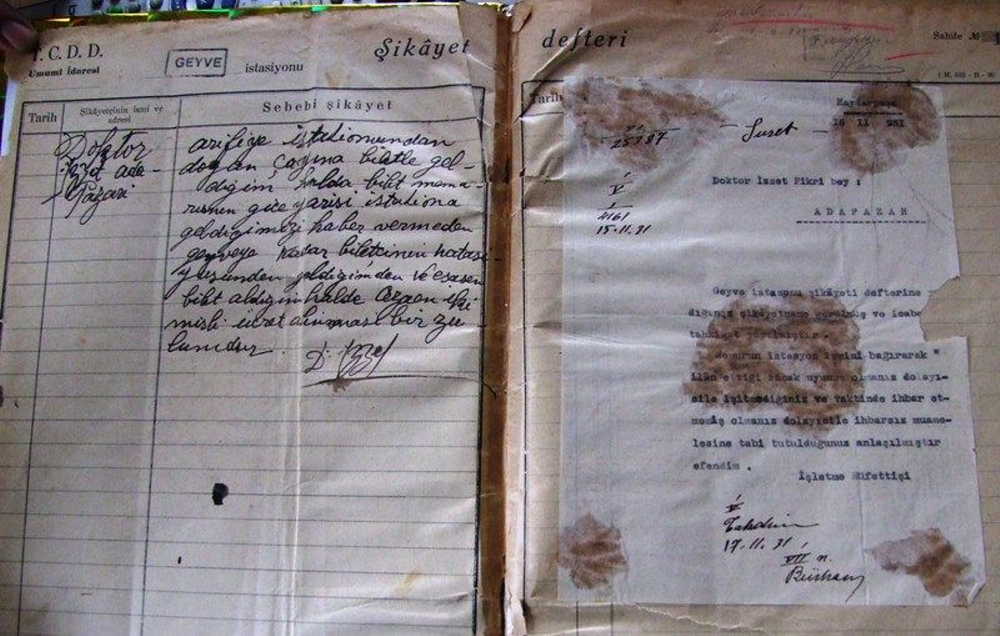 T. C. D. D.
Umumî İdaresi
GEYVE
istasiyonu
Şikâyet
Tarih
Şikâyetçinin ismi ve
adresi
Sebebi şikâyet
Doktor
İzzet ada
Pazari
arifiye istasionundan
doğan çağına biletle gel-
diğim halda bilet memu-
runun gice yarisi istasiona
geldiğimizi haber vermeden
geyveye kadar biletcinin hatasi
yüzünden geldiğimden ve esasen
bilet aldığım halde iki
misli ücret alınması bir zu-
lumdur.
D. İzzet
defteri
Sahife №
Tarih
Haydarpaşa
16 II 931
25387
Suret
V
4161
15.11.31
Doktor İzzet Fikri bey :
ADAPAZAR
Geyve istasonu şikâyeti defterine
dığınız şikâyetname görülmüş ve icabe
tahkikat
Memurun istasyon ismini bağırarak
ilân ettiği ancak uyumuş olmanız dolayı-
sile işitmediğiniz ve vaktinde ihbar et-
memiş olmanız dolayısile ihbarsız muame-
lesine tabi tutulduğunuz anlaşılmıştır
efendim .
İşletme Müfettişi
V
Takdim
17.11.31
VII n.
Bürhan